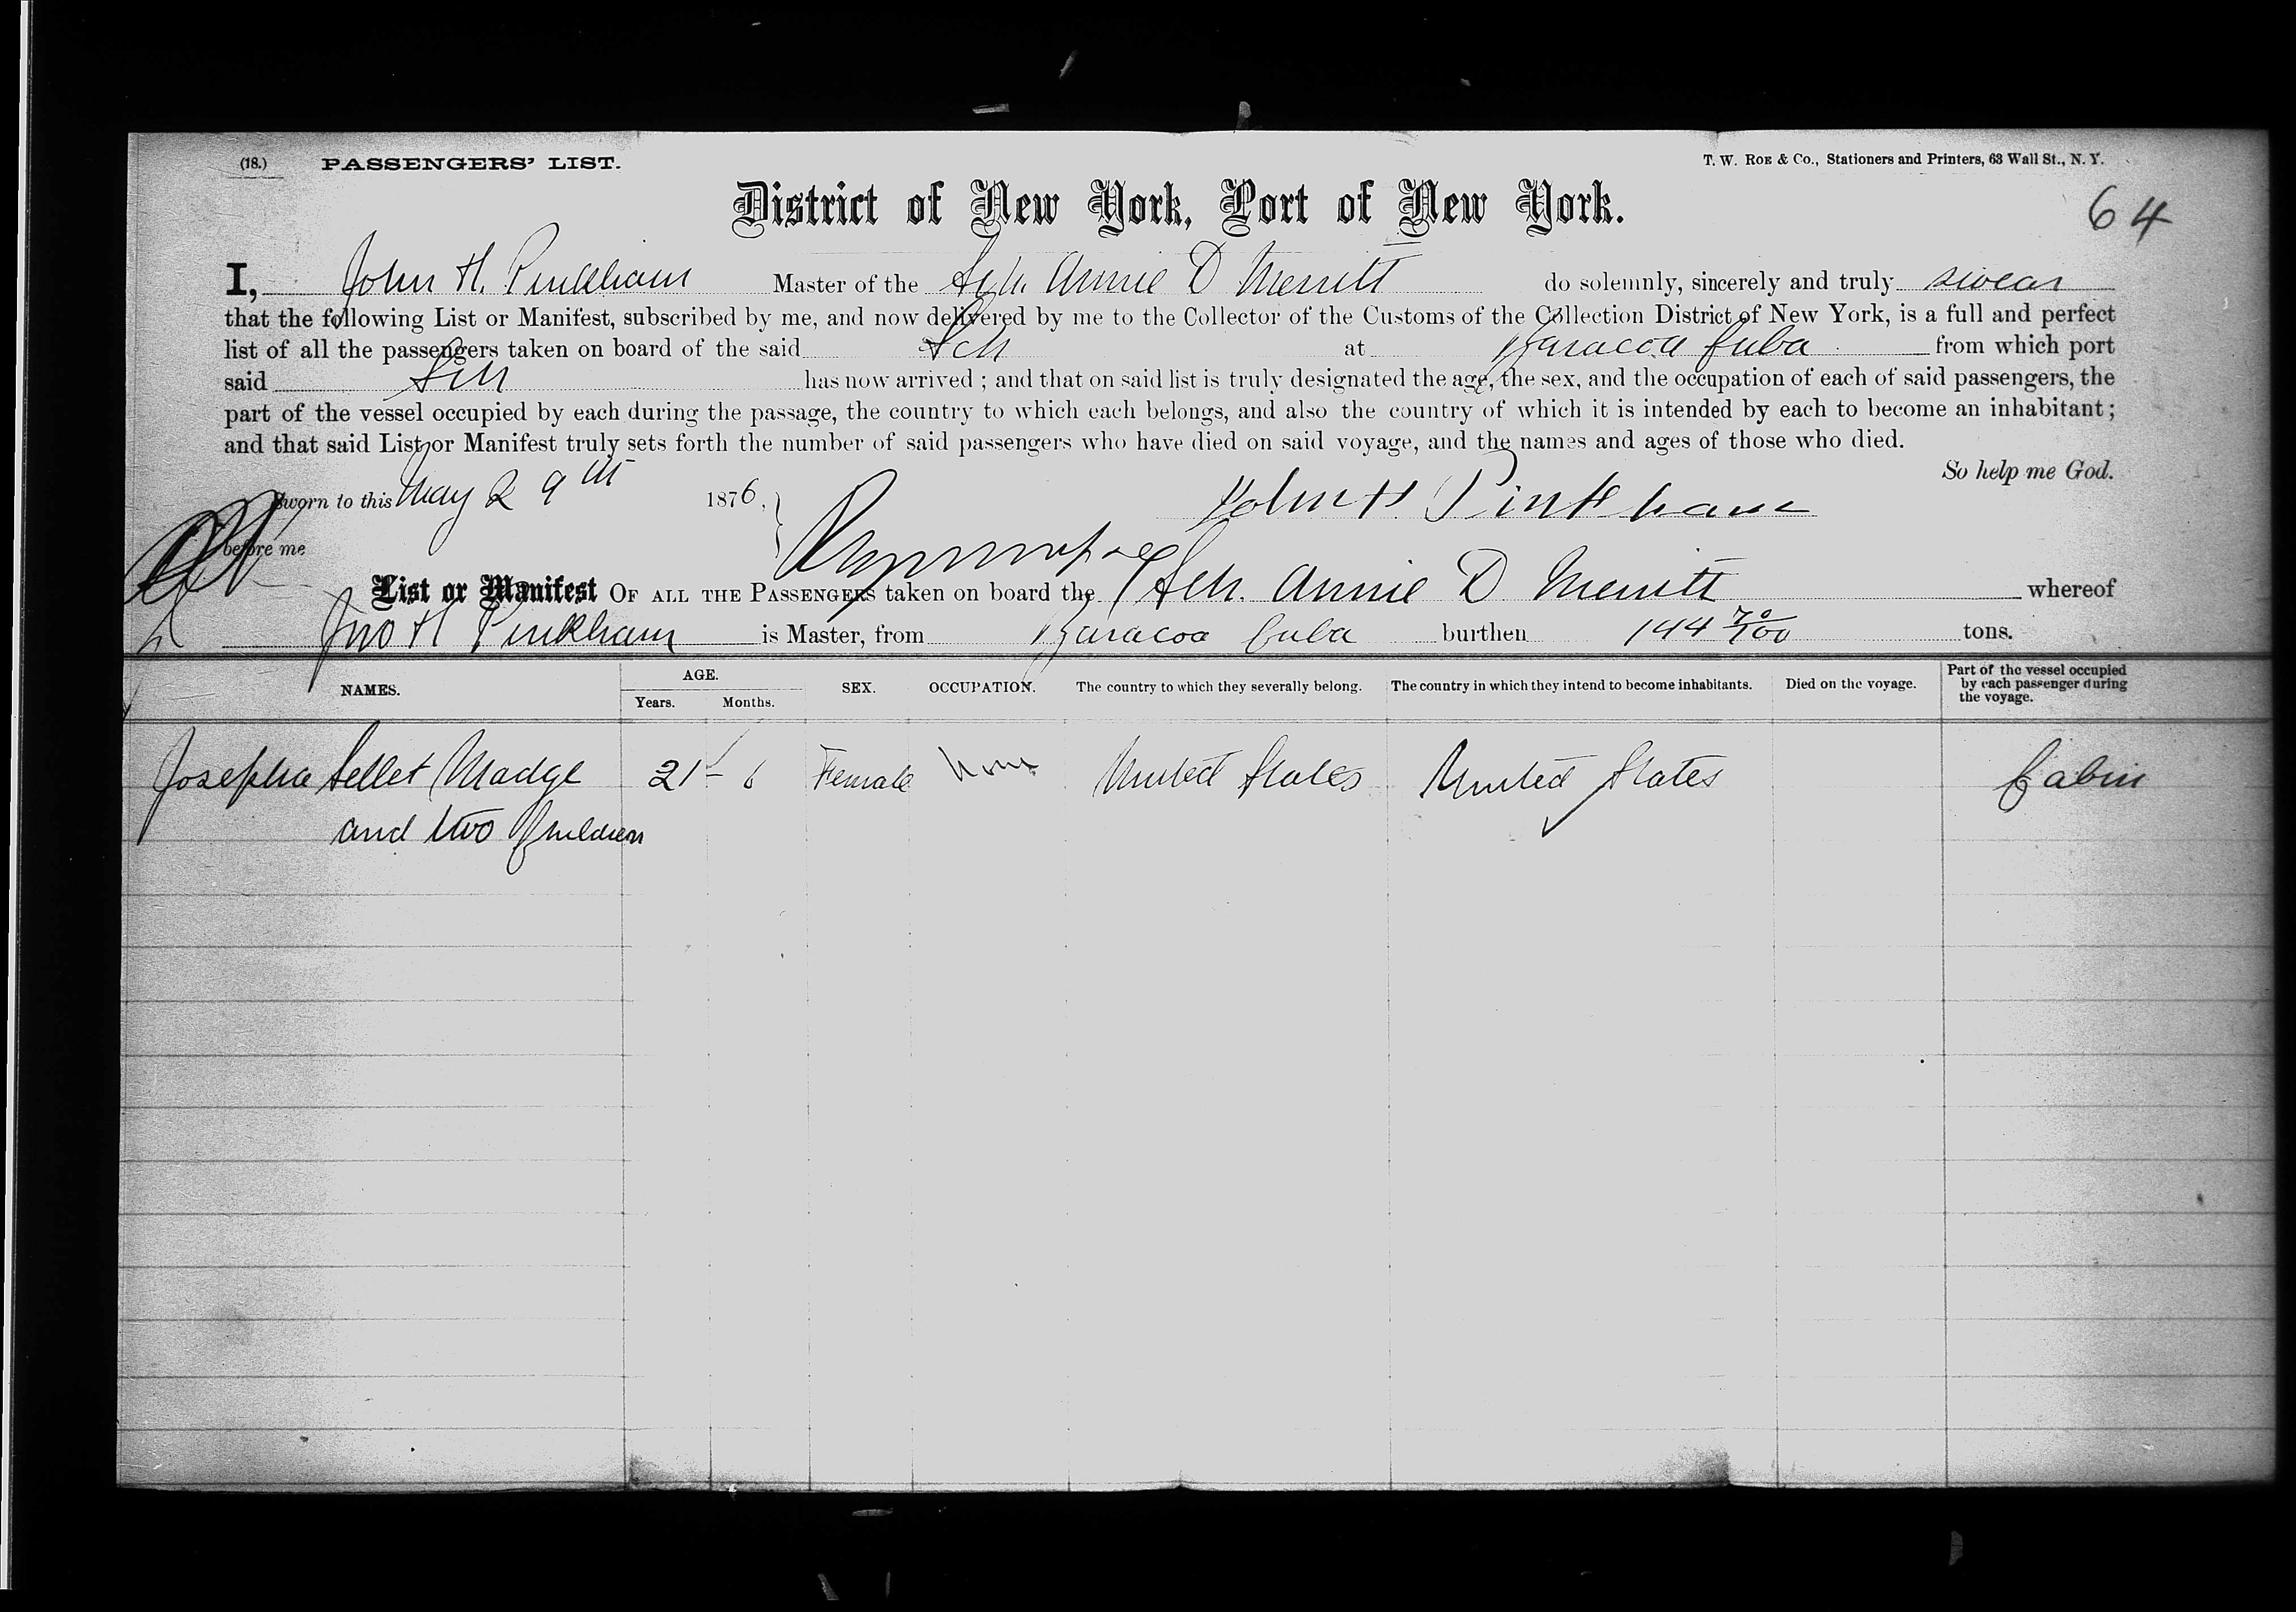 (18.) PASSENGERS' LIST. T. W. ROE & CO., Stationers and Printers, 63 Wall St., N. Y.
64
District of New York, Port of New York.
I, John H. Pinkham Master of the Sch. Annie D Merritt do solemnly, sincerely and truly swear
that the following List or Manifest, subscribed by me, and now delivered by me to the Collector of the Customs of the Collection District of New York, is a full and perfect
list of all the passengers taken on board of the said Sch at Baracoa Cuba from which port
said Sch has now arrived ; and that on said list is truly designated the age, the sex, and the occupation of each of said passengers, the
part of the vessel occupied by each during the passage, the country to which each belongs, and also the country of which it is intended by each to become an inhabitant ;
and that said List or Manifest truly sets forth the number of said passengers who have died on said voyage, and the names and ages of those who died.
So help me God.
Sworn to this May 29th 1876, John H Pinkham
before me
List or Manifest OF ALL THE PASSENGERS taken on board the Sch. Annie D Merritt whereof
Jno H Pinkham is Master, from Baracoa Cuba burthen 144 70/100 tons.
NAMES. AGE. Years. Months. SEX. OCCUPATION. The country to which they severally belong. The country in which they intend to become inhabitants. Died on the voyage. Part of the vessel occupied by each passenger during the voyage.
Josepha Sellet Madge 21 - 6 Female None United States United States Cabin
and two Children